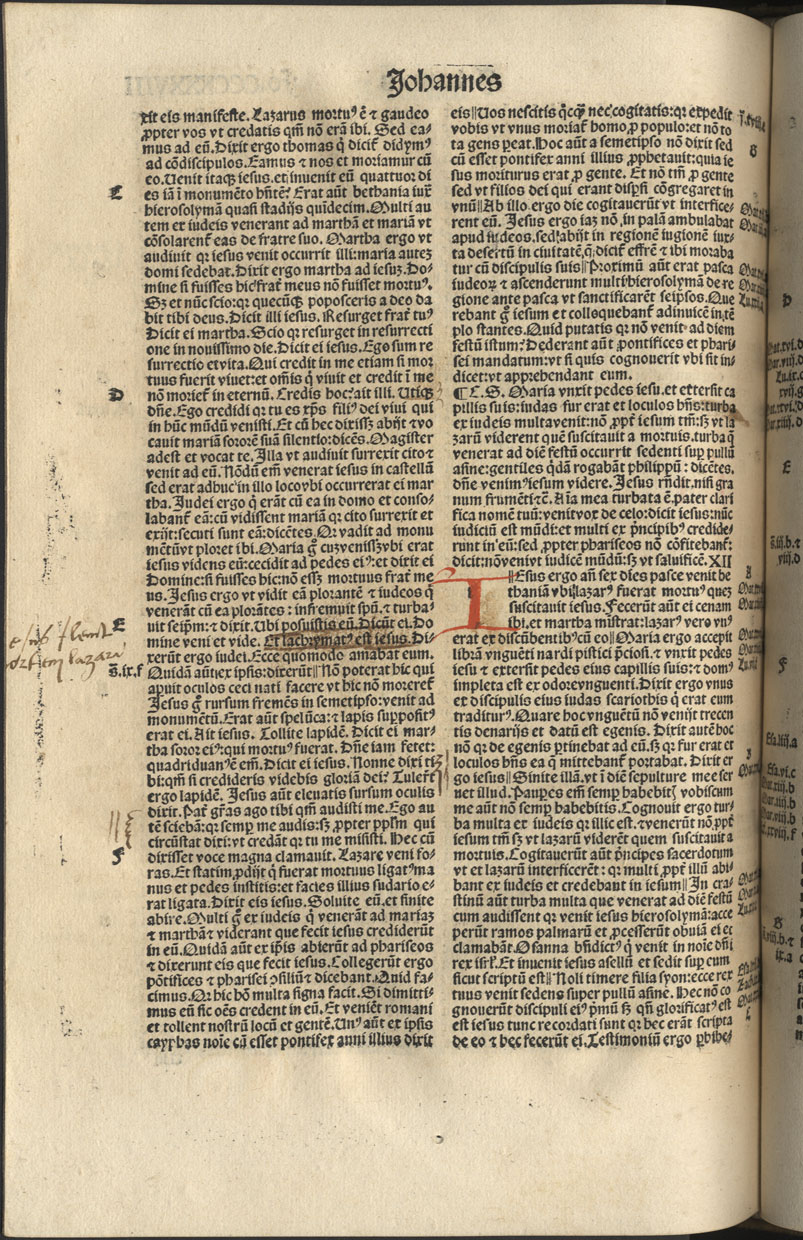 Johannes
xit eis manifeste. Lazarus mortuꝰ ē ⁊ gaudeo
ꝓpter vos vt credatis qm̄ nō erā ibi. Sed ea-
mus ad eū. Dixit ergo thomas q̇ dicit̉ didymꝰ
ad cōdiscipulos. Eamus ⁊ nos et moriamur cū
eo. Venit itaqꝫ iesus. et inuenit eū quattuor di
C
es iā ī monumēto hn̄tē. Erat aūt bethania iux̄
hierosolymā quasi stadijs quīdecim. Multi au
tem ex iudeis venerant ad marthā et mariā vt
cōsolarent̉ eas de fratre suo. Martha ergo vt
audiuit qꝛ iesus venit occurrit illi: maria auteꝫ
domi sedebat. Dixit ergo martha ad iesuꝫ. Do-
mine si fuisses hic frat̉ meus nō fuisset mortuꝰ.
Sꝫ et nūc scio: qꝛ quecūqꝫ poposceris a deo da
bit tibi deus. Dicit illi iesus. Resurget frat̉ tuꝰ
Dicit ei martha. Scio qꝛ resurget in resurrecti
one in nouissimo die. Dicit ei iesus. Ego sum re
surrectio et vita. Qui credit in me etiam si mor
tuus fuerit viuet: et oīs q̇ viuit et credit ī me
D
nō moriet̉ in eternū. Credis hoc: ait illi. Utiqꝫ
dn̄e. Ego credidi qꝛ tu es xp̄s filiꝰ dei viui qui
in hūc mūdū venisti. Et cū hec dixissꝫ abijt ⁊ vo
cauit mariā sororē suā silentio: dicēs. Magister
adest et vocat te. Illa vt audiuit surrexit cito ⁊
venit ad eū. Nōdū em̄ venerat iesus in castellū
sed erat adhuc in illo loco vbi occurrerat ei mar
tha. Judei ergo q̇ erāt cū ea in domo et conso-
labant̉ eā: cū vidissent mariā qꝛ cito surrexit et
exijt: secuti sunt eā: dicētes. Qꝛ vadit ad monu
mētū vt ploret ibi. Maria g̊ cuꝫ venissꝫ vbi erat
iesus videns eū: cecidit ad pedes eiꝰ: et dixit ei
Domine: si fuisses hic: nō essꝫ mortuus frat̉ me
us. Jesus ergo vt vidit eā plorantē ⁊ iudeos q̇
venerāt cū ea plorātes: infremuit spū. ⁊ turba-
E
uit seipm̄: ⁊ dixit. Ubi posuistis eū. Dicūt ei. Do
mine veni et vide. Et lachrymatꝰ est iesus. Di-
xerūt ergo iudei. Ecce quomodo amabat eum.
Quidā aūt ex ipsis: dixerūt‖ Nō poterat hic qui
apuit oculos ceci nati facere vt hic nō moreret̉
Jesus g̊ rursum fremēs in semetipso: venit ad
monumētū. Erat aūt spelūca: ⁊ lapis suppositꝰ
erat ei. Ait iesus. Tollite lapidē. Dicit ei mar-
tha soror eiꝰ: qui mortuꝰ fuerat. Dn̄e iam fetet:
quadriduanꝰ em̄. Dicit ei iesus. Nonne dixi ti
bi: qm̄ si credideris videbis gloriā dei? Tulert̄
ergo lapidē. Jesus aūt eleuatis sursum oculis
dixit. Pat̉ gr̄as ago tibi qm̄ audisti me. Ego au
tē sciebā: qꝛ semp me audis: sꝫ ꝓpter pp̄lm qui
circūstat dixi: vt credāt qꝛ tu me misisti. Hec cū
F
dixisset voce magna clamauit. Lazare veni fo-
ras. Et statim ꝓdijt q̇ fuerat mortuus ligatꝰ ma
nus et pedes institis: et facies illius sudario e-
rat ligata. Dixit eis iesus. Soluite eū. et sinite
abire. Multi g̊ ex iudeis q̇ venerāt ad mariaꝫ
⁊ marthā ⁊ viderant que fecit iesus crediderūt
in eū. Quidā aūt ex ip̄is abierūt ad phariseos
⁊ dixerunt eis que fecit iesus. Collegerūt ergo
pōtifices ⁊ pharisei ꝯsiliū ⁊ dicebant. Quid fa-
cimus. Qꝛ hic hō multa signa facit. Si dimitti-
mus eū sic oēs credent in eū. Et veniēt romani
et tollent nostrū locū et gentē. Unꝰ aūt ex ipsis
cayphas noīe cū esset pontifex anni illius dixit
eis‖ Vos nescitis q̇cq̄ȝ nec cogitatis: qꝛ expedit
vobis vt vnus moriat̉ homo ꝓ populo: et nō to
ta gens ꝑeat. Hoc aūt a semetipso nō dixit sed
cū esset pontifex anni illius ꝓphetauit: quia ie
sus moriturus erat ꝓ gente. Et nō tm̄ ꝓ gente
sed vt filios dei qui erant disꝑsi cōgregaret in
vnū‖ Ab illo ergo die cogitauerūt vt interfice-
rent eū. Jesus ergo iaꝫ nō in palā ambulabat
apud iudeos. sed abijt in regionē iuxta
ta desertū in ciuitatē q̇ dicit̉ effrē ⁊ ibi moraba
tur cū discipulis suis‖ Proximū aūt erat pasca
iudeoꝝ ⁊ ascenderunt multi hierosolymā de re
gione ante pasca vt sanctificarēt seipsos. Que
rebant g̊ iesum et colloquebant̉ adinuicē in tē
plo stantes. Quid putatis qꝛ nō venit ad diem
festū istum? Dederant aūt ꝓntifices et phari-
sei mandatum: vt si quis cognouerit vbi sit in-
dicet: vt apprehendant eum.
¶ C. S. Maria vnxit pedes iesu. et extersit ca
pillis suis: iudas fur erat et loculos hn̄s: turba
ex iudeis multa venit: nō ꝓpt̉ iesum tm̄: sꝫ vt la
zarū viderent quē suscitauit a mortuis. turba q̄
venerat ad diē festū occurrit sedenti suꝑ pullū
asine: gentiles q̇dā rogabāt philippū: dicētes.
dn̄e venim̄ iesum videre. Jesus rn̄dit. nisi gra
num frumēti ⁊c̄. Aīa mea turbata ē. pater clari
fica nomē tuū: venit vox de celo: dicit iesus: nūc
iudiciū est mūdi: et multi ex pͥncipibꝰ credide-
runt in eū: sed ꝓpter phariseos nō cōfitebant̉:
dicit: nō veni vt iudicē mūdū: sꝫ vt saluificē. XII
IEsus ergo an̄ sex dies pasce venit be
thaniā vbi lazarꝰ fuerat mortuꝰ queꝫ
suscitauit iesus. Fecerūt aūt ei cenam
ibi. et martha mīstrat: lazarꝰ vero vnꝰ
erat ex discūbentibꝰ cū eo‖ Maria ergo accepit
librā vnguēti nardi pistici p̄ciosi. ⁊ vnxit pedes
iesu ⁊ extersit pedes eius capillis suis: ⁊ domꝰ
impleta est ex odore vnguenti. Dixit ergo vnus
ex discipulis eius iudas scariothis q̇ erat eum
traditurꝰ. Quare hoc vnguētū nō venijt trecen
tis denarijs et datū est egenis. Dixit autē hoc
nō qꝛ de egenis ꝑtinebat ad eū. sꝫ qꝛ fur erat et
loculos hn̄s ea q̄ mittebant̉ portabat. Dixit er
go iesus‖ Sinite illā. vt ī diē sepulture mee ser
uet illud. Pauꝑes em̄ semp habebitꝭ vobiscum
me aūt nōn semp habebitis. Cognouit ergo tur-
ba multa ex iudeis qꝛ illic est. ⁊ venerūt nō ꝓpt̉
iesum tm̄ sꝫ vt lazarū viderēt quem suscitauit a
mortuis. Cogitauerūt aūt pͥncipes sacerdotum
vt et lazarū interficerēt: qꝛ multi ꝓpt̉ illū abi-
bant ex iudeis et credebant in iesum‖ In cra-
stinū aūt turba multa que venerat ad diē festū
cum audissent qꝛ venit iesus hierosolymā: acce
perūt ramos palmarū et ꝓcesserūt obuiā ei et
clamabāt. Osanna bn̄dictꝰ q̇ venit in noīe dn̄i
rex isrl̄. Et inuenit iesus asellū et sedit suꝑ eum
sicut scriptū est‖ Noli timere filia syon: ecce rex
tuus venit sedens super pullū asine. Hec nō co
gnouerūt discipuli eiꝰ pͥmū sꝫ qn̄ glorificatꝰ est
est iesus tunc recordati sunt qꝛ hec erāt scripta
de eo ⁊ hec fecerūt ei. Testimoniū ergo ꝑhibe-